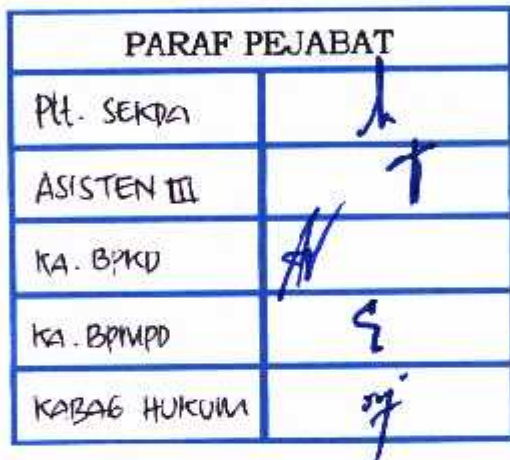 PARAF PEJABAT
Plt. SEKDA
ASISTEN III
KA. BPKD
KA. BPMPD
KABAG HUKUM